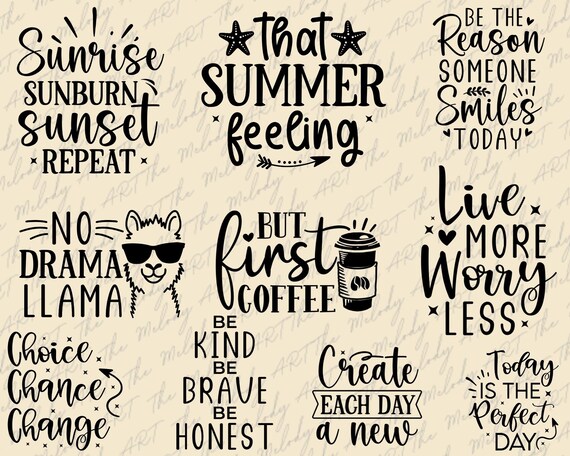 Sunrise
SUNBURN
sunset
REPEAT
that
SUMMER
feeling
BE THE
Reason
SOMEONE
Smiles
TODAY
NO
DRAMA
LLAMA
BUT
first
COFFEE
Live
MORE
Worry
LESS
Choice
Chance
Change
BE
KIND
BE
BRAVE
BE
HONEST
Create
EACH DAY
a new
Today
IS THE
Perfect
DAY
ART The Melody